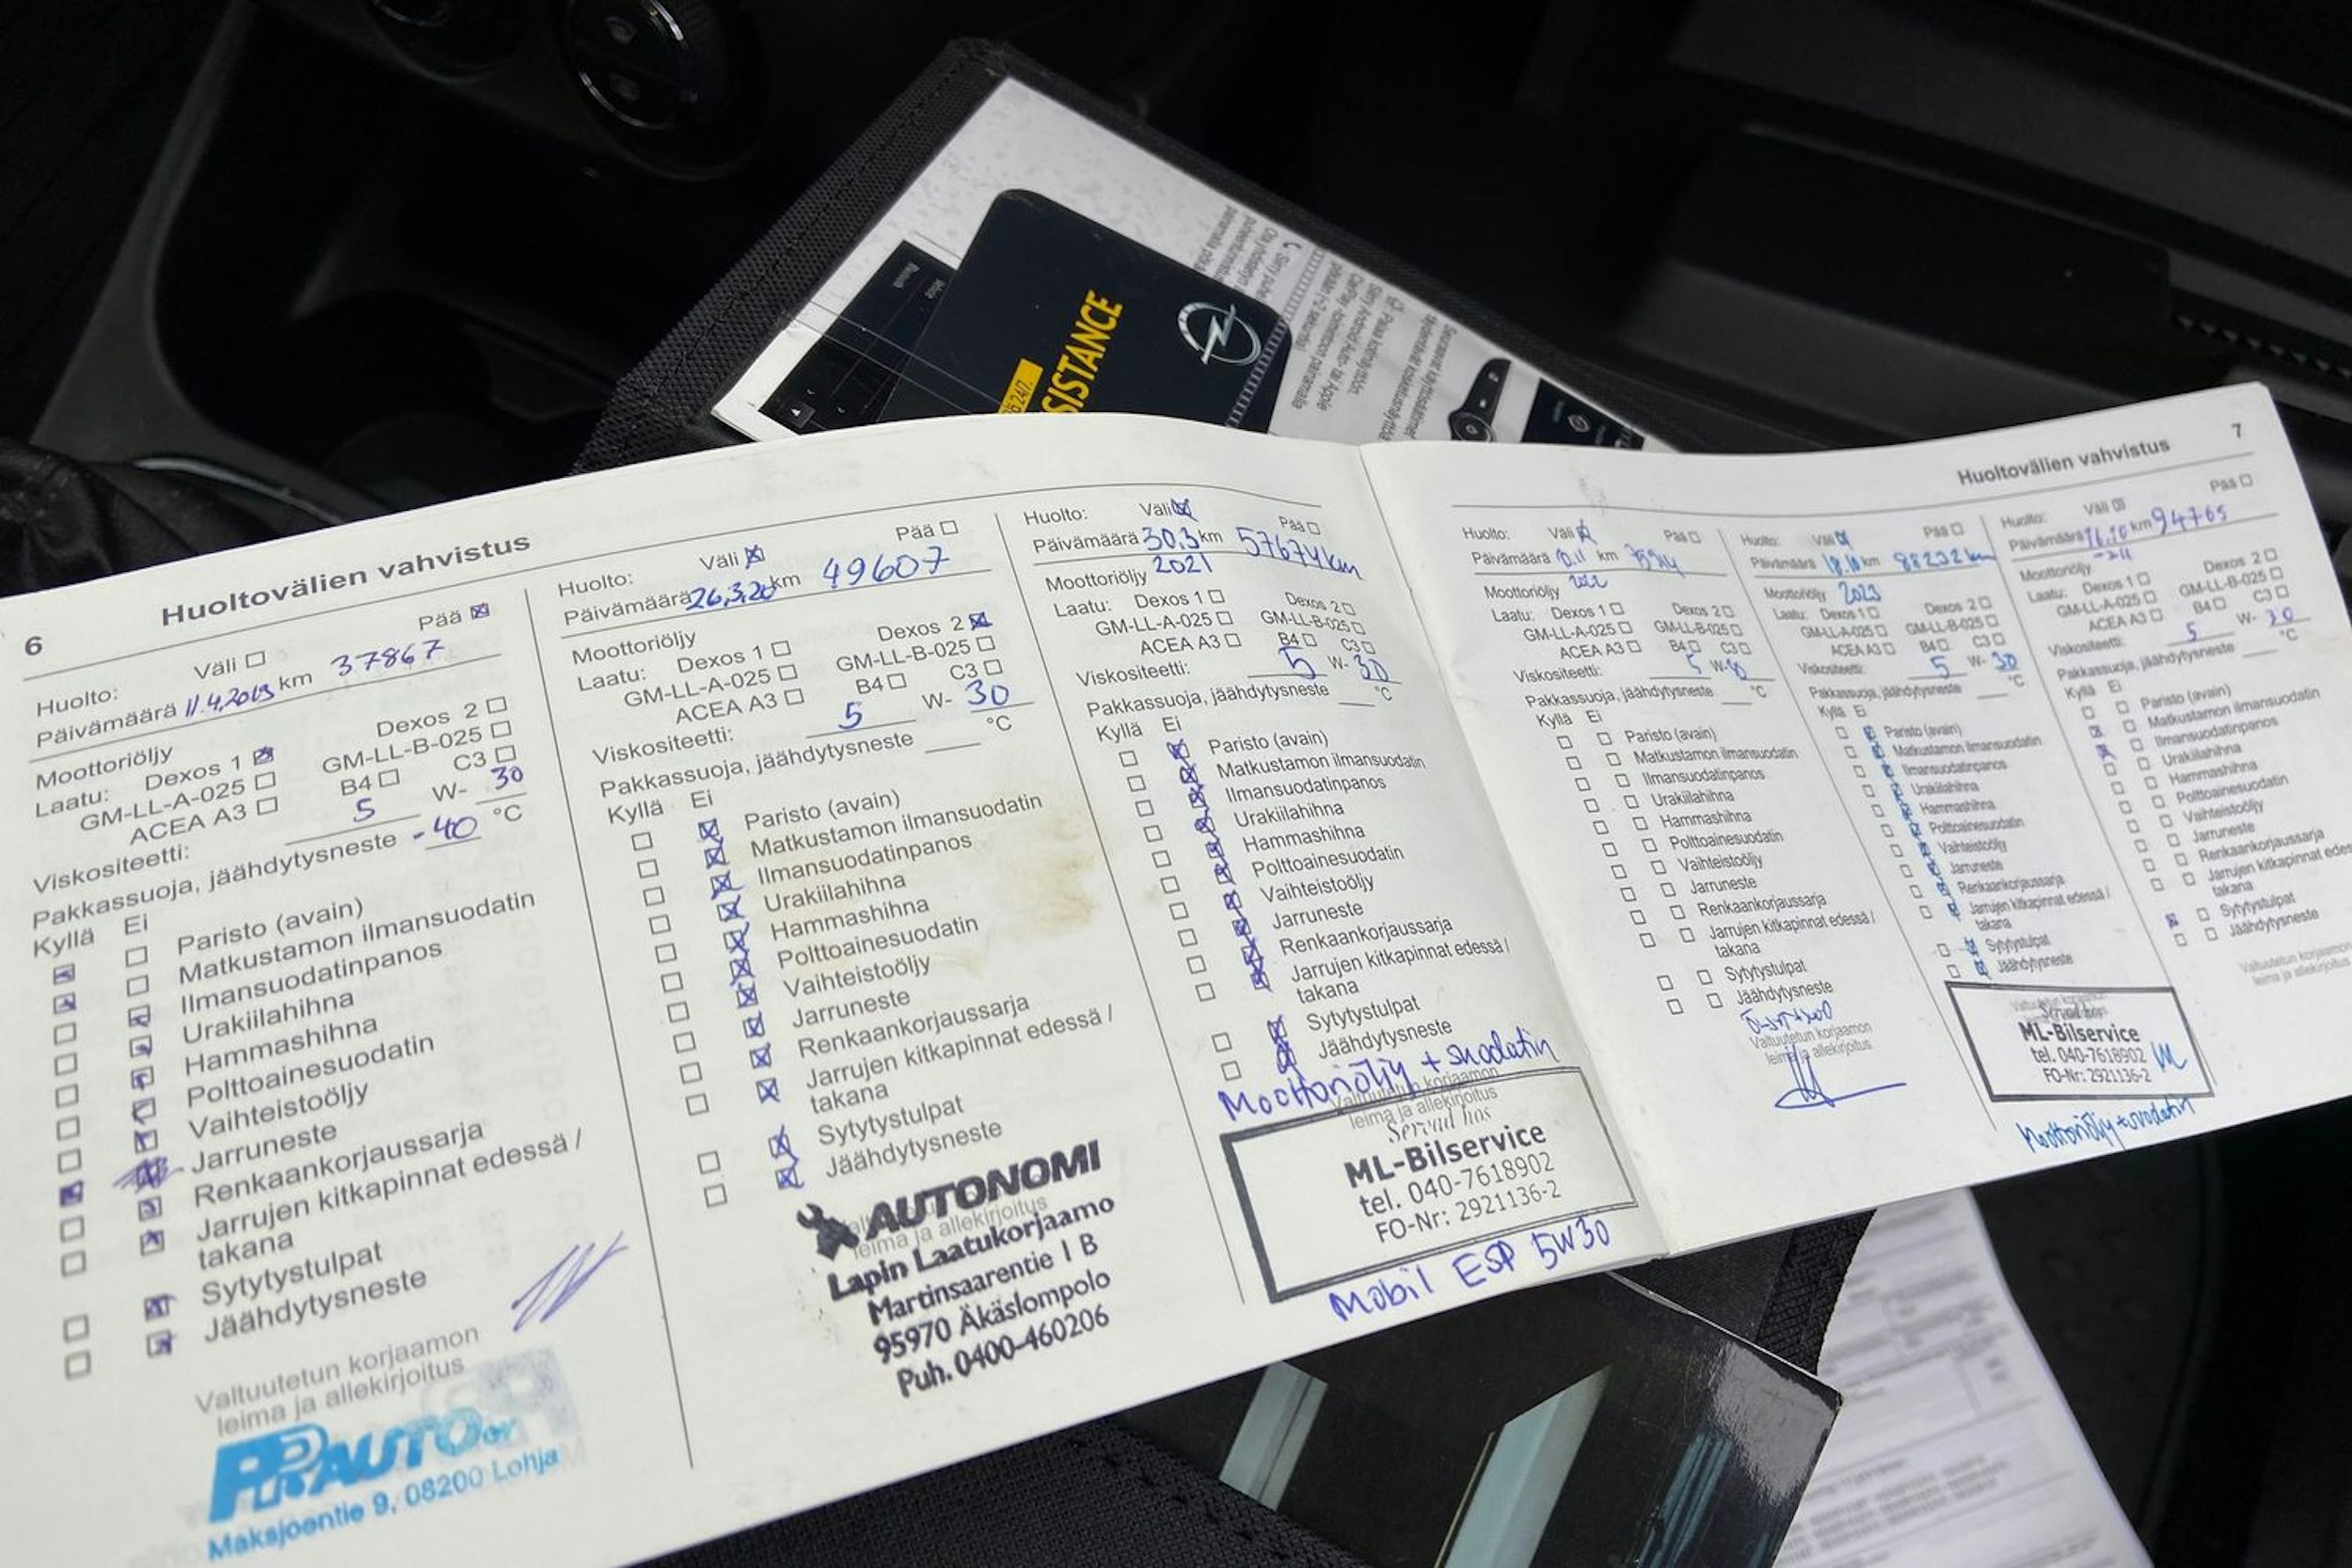 SISTANCE
24/7.
6
Huoltovälien vahvistus
Huolto: Väli Pää
Päivämäärä 11.4.2019 km 37867
Moottoriöljy
Laatu: Dexos 1 Dexos 2
GM-LL-A-025 GM-LL-B-025
ACEA A3 B4 C3
Viskositeetti: 5 W- 30
Pakkassuoja, jäähdytysneste -40 °C
Kyllä Ei
Paristo (avain)
Matkustamon ilmansuodatin
Ilmansuodatinpanos
Urakiilahihna
Hammashihna
Polttoainesuodatin
Vaihteistoöljy
Jarruneste
Renkaankorjaussarja
Jarrujen kitkapinnat edessä /
takana
Sytytystulpat
Jäähdytysneste
Valtuutetun korjaamon
leima ja allekirjoitus
Maksjoentie 9, 08200 Lohja
Huolto: Väli Pää
Päivämäärä 26.3.20 km 49607
Moottoriöljy
Laatu: Dexos 1 Dexos 2
GM-LL-A-025 GM-LL-B-025
ACEA A3 B4 C3
Viskositeetti: 5 W- 30
Pakkassuoja, jäähdytysneste °C
Kyllä Ei
Paristo (avain)
Matkustamon ilmansuodatin
Ilmansuodatinpanos
Urakiilahihna
Hammashihna
Polttoainesuodatin
Vaihteistoöljy
Jarruneste
Renkaankorjaussarja
Jarrujen kitkapinnat edessä /
takana
Sytytystulpat
Jäähdytysneste
AUTONOMI
leima ja allekirjoitus
Lapin Laatukorjaamo
Martinsaarentie 1 B
95970 Äkäslompolo
Puh. 0400-460206
Huolto: Väli Pää
Päivämäärä 30.3 km 57674km
2021
Moottoriöljy
Laatu: Dexos 1 Dexos 2
GM-LL-A-025 GM-LL-B-025
ACEA A3 B4 C3
Viskositeetti: 5 W- 30
Pakkassuoja, jäähdytysneste °C
Kyllä Ei
Paristo (avain)
Matkustamon ilmansuodatin
Ilmansuodatinpanos
Urakiilahihna
Hammashihna
Polttoainesuodatin
Vaihteistoöljy
Jarruneste
Renkaankorjaussarja
Jarrujen kitkapinnat edessä /
takana
Sytytystulpat
Jäähdytysneste
Moottoriöljy + suodatin
Valtuutetun korjaamon
leima ja allekirjoitus
Servad hos
ML-Bilservice
tel. 040-7618902
FO-Nr: 2921136-2
Mobil ESP 5W30
Huoltovälien vahvistus
7
Huolto: Väli Pää
Päivämäärä km
Moottoriöljy 2022
Laatu: Dexos 1 Dexos 2
GM-LL-A-025 GM-LL-B-025
ACEA A3 B4 C3
Viskositeetti: 5 W-
Pakkassuoja, jäähdytysneste °C
Kyllä Ei
Paristo (avain)
Matkustamon ilmansuodatin
Ilmansuodatinpanos
Urakiilahihna
Hammashihna
Polttoainesuodatin
Vaihteistoöljy
Jarruneste
Renkaankorjaussarja
Jarrujen kitkapinnat edessä /
takana
Sytytystulpat
Jäähdytysneste
Valtuutetun korjaamon
leima ja allekirjoitus
Huolto: Väli Pää
Päivämäärä 18.10 km 88232km
Moottoriöljy 2023
Laatu: Dexos 1 Dexos 2
GM-LL-A-025 GM-LL-B-025
ACEA A3 B4 C3
Viskositeetti: 5 W- 30
Pakkassuoja, jäähdytysneste °C
Kyllä Ei
Paristo (avain)
Matkustamon ilmansuodatin
Ilmansuodatinpanos
Urakiilahihna
Hammashihna
Polttoainesuodatin
Vaihteistoöljy
Jarruneste
Renkaankorjaussarja
Jarrujen kitkapinnat edessä /
takana
Sytytystulpat
Jäähdytysneste
Servad hos
ML-Bilservice
tel. 040-7618902
FO-Nr: 2921136-2
Moottoriöljy + suodatin
Huolto: Väli Pää
Päivämäärä 16.10 km 94765
Moottoriöljy
Laatu: Dexos 1 Dexos 2
GM-LL-A-025 GM-LL-B-025
ACEA A3 B4 C3
Viskositeetti: 5 W- 30
Pakkassuoja, jäähdytysneste °C
Kyllä Ei
Paristo (avain)
Matkustamon ilmansuodatin
Ilmansuodatinpanos
Urakiilahihna
Hammashihna
Polttoainesuodatin
Vaihteistoöljy
Jarruneste
Renkaankorjaussarja
Jarrujen kitkapinnat edessä
takana
Sytytystulpat
Jäähdytysneste
Valtuutetun korjaamon
leima ja allekirjoitus